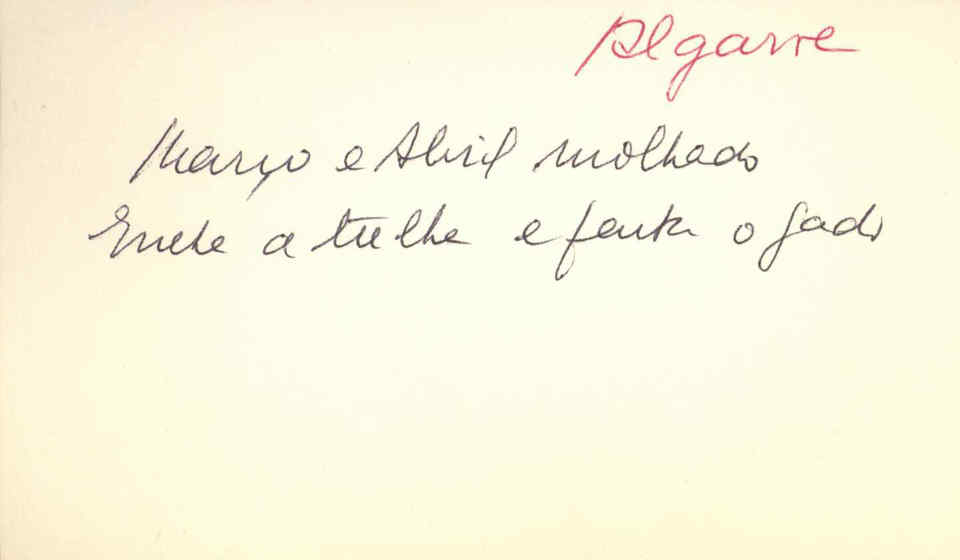 Algarve
Março e Abril molhado
Enche a tulha e farta o gado